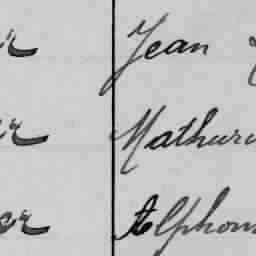 er Jean
er Mathuri
er Alphons